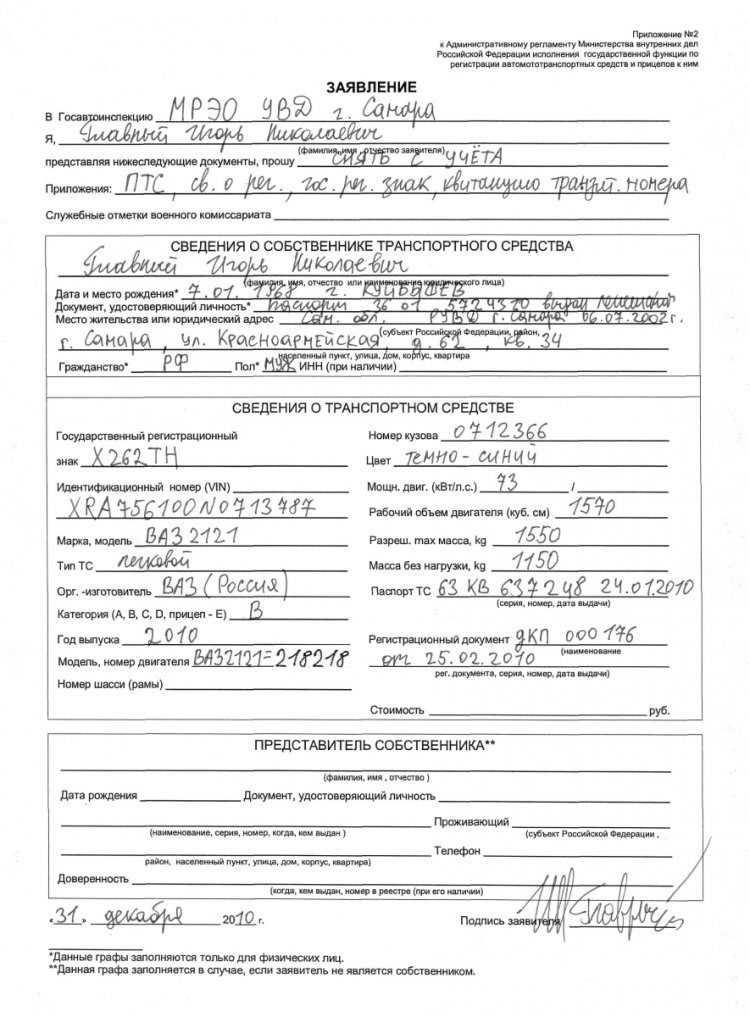 Приложение №2
к Административному регламенту Министерства внутренних дел
Российской Федерации исполнения государственной функции по
регистрации автомототранспортных средств и прицепов к ним
ЗАЯВЛЕНИЕ
В Госавтоинспекцию МРЭО УВД г. Самара
Я, Главный Игорь Николаевич
(фамилия, имя, отчество заявителя)
представляя нижеследующие документы, прошу СНЯТЬ С УЧЁТА
Приложения: ПТС, св. о рег., гос. рег. знак, квитанцию транзит. номера
Служебные отметки военного комиссариата
СВЕДЕНИЯ О СОБСТВЕННИКЕ ТРАНСПОРТНОГО СРЕДСТВА
Главный Игорь Николаевич
(фамилия, имя, отчество или наименование юридического лица)
Дата и место рождения* 7.01.1968 г. КУЙБЫШЕВ
Документ, удостоверяющий личность* паспорт 36 01 5724370 выдан Ленинским
Место жительства или юридический адрес Сам. обл. РУВД г. Самара 06.07.2002г.
(субъект Российской Федерации, район,
г. Самара, ул. Красноармейская, д. 62, кв. 34
населенный пункт, улица, дом, корпус, квартира
Гражданство* РФ Пол* МУЖ ИНН (при наличии)
СВЕДЕНИЯ О ТРАНСПОРТНОМ СРЕДСТВЕ
Государственный регистрационный
знак Х262ТН
Идентификационный номер (VIN)
XRA756100N0713787
Марка, модель ВАЗ 2121
Тип ТС легковой
Орг. -изготовитель ВАЗ (Россия)
Категория (A, B, C, D, прицеп - E) B
Год выпуска 2010
Модель, номер двигателя ВАЗ2121=218218
Номер шасси (рамы)
Номер кузова 0712366
Цвет темно-синий
Мощн. двиг. (кВт/л.с.) 73 /
Рабочий объем двигателя (куб. см) 1570
Разреш. max масса, kg 1550
Масса без нагрузки, kg 1150
Паспорт ТС 63 КВ 637248 24.01.2010
(серия, номер, дата выдачи)
Регистрационный документ ДКП 000176
(наименование
от 25.02.2010
рег. документа, серия, номер, дата выдачи)
Стоимость руб.
ПРЕДСТАВИТЕЛЬ СОБСТВЕННИКА**
(фамилия, имя , отчество )
Дата рождения Документ, удостоверяющий личность
Проживающий
(наименование, серия, номер, когда, кем выдан ) (субъект Российской Федерации ,
Телефон
район, населенный пункт, улица, дом, корпус, квартира)
Доверенность
(когда, кем выдан, номер в реестре (при его наличии)
«31» декабря 2010 г. Подпись заявителя
*Данные графы заполняются только для физических лиц.
**Данная графа заполняется в случае, если заявитель не является собственником.